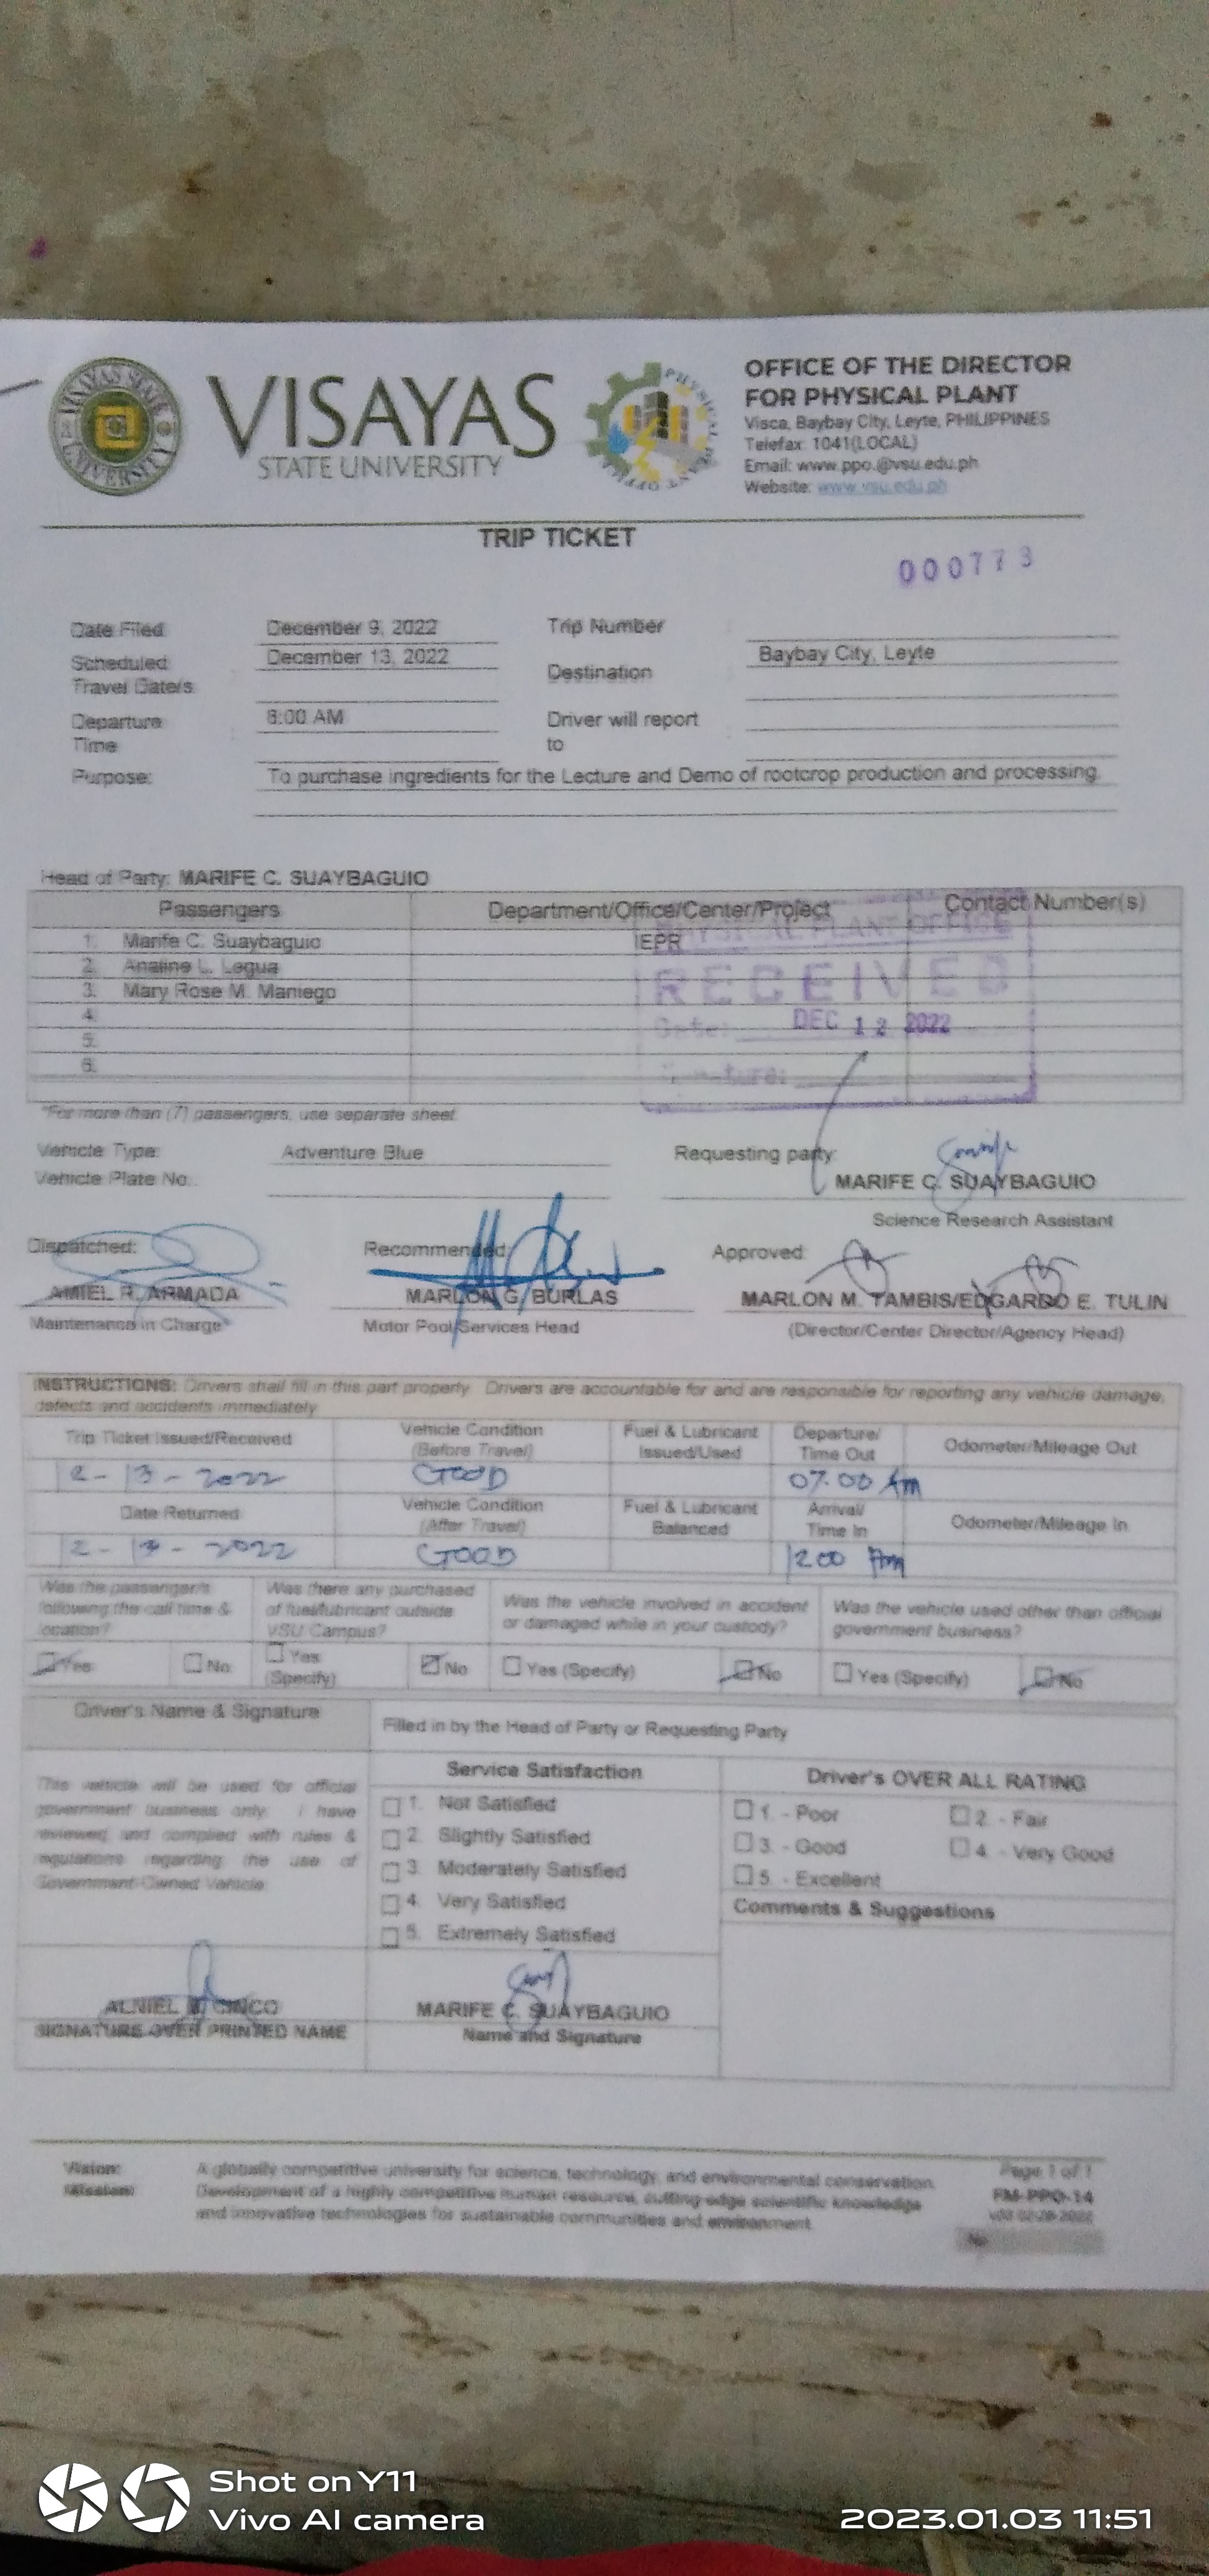 VISAYAS
STATE UNIVERSITY
VISAYAS STATE UNIVERSITY
OFFICE OF THE DIRECTOR
FOR PHYSICAL PLANT
Visca, Baybay City, Leyte, PHILIPPINES
Telefax: 1041(LOCAL)
Email: www.ppo.@vsu.edu.ph
Website: www.vsu.edu.ph
TRIP TICKET
000773
Date Filed December 9, 2022 Trip Number
Scheduled Travel Date/s December 13, 2022 Destination Baybay City, Leyte
Departure Time 8:00 AM Driver will report to
Purpose: To purchase ingredients for the Lecture and Demo of rootcrop production and processing.
Head of Party: MARIFE C. SUAYBAGUIO
Passengers Department/Office/Center/Project Contact Number(s)
1. Marife C. Suaybaguio IEPR
2. Analine L. Legua
3. Mary Rose M. Maniego
4.
5.
6.
PHYSICAL PLANT OFFICE
RECEIVED
Date: DEC 12 2022
Signature:
*For more than (7) passengers, use separate sheet.
Vehicle Type: Adventure Blue Requesting party:
Vehicle Plate No.: MARIFE C. SUAYBAGUIO
Science Research Assistant
Dispatched: Recommended: Approved:
AMIEL R. ARMADA MARLON G. BURLAS MARLON M. TAMBIS/EDGARDO E. TULIN
Maintenance in Charge Motor Pool Services Head (Director/Center Director/Agency Head)
INSTRUCTIONS: Drivers shall fill in this part properly. Drivers are accountable for and are responsible for reporting any vehicle damage,
defects and accidents immediately
Trip Ticket Issued/Received Vehicle Condition (Before Travel) Fuel & Lubricant Issued/Used Departure/ Time Out Odometer/Mileage Out
12-13-2022 GOOD 07:00 Am
Date Returned Vehicle Condition (After Travel) Fuel & Lubricant Balanced Arrival/ Time In Odometer/Mileage In
GOOD 1200
Was the passenger/s following the call time & location? Was there any purchased of fuel/lubricant outside VSU Campus? Was the vehicle involved in accident or damaged while in your custody? Was the vehicle used other than official government business?
Yes No Yes (Specify) No Yes (Specify) No Yes (Specify) No
Driver's Name & Signature Filled in by the Head of Party or Requesting Party
Service Satisfaction Driver's OVER ALL RATING
This vehicle will be used for official
government business only. I have
reviewed and complied with rules &
regulations regarding the use of
Government-Owned Vehicle.
1. Not Satisfied
2. Slightly Satisfied
3. Moderately Satisfied
4. Very Satisfied
5. Extremely Satisfied
1. - Poor 2. - Fair
3. - Good 4. - Very Good
5. - Excellent
Comments & Suggestions
ALNIEL CINCO MARIFE C. SUAYBAGUIO
SIGNATURE OVER PRINTED NAME Name and Signature
Vision: A globally competitive university for science, technology, and environmental conservation.
Mission: Development of a highly competitive human resource, cutting-edge scientific knowledge
and innovative technologies for sustainable communities and environment.
Page 1 of 1
FM-PPO-14
No.
Shot on Y11
Vivo AI camera
2023.01.03 11:51